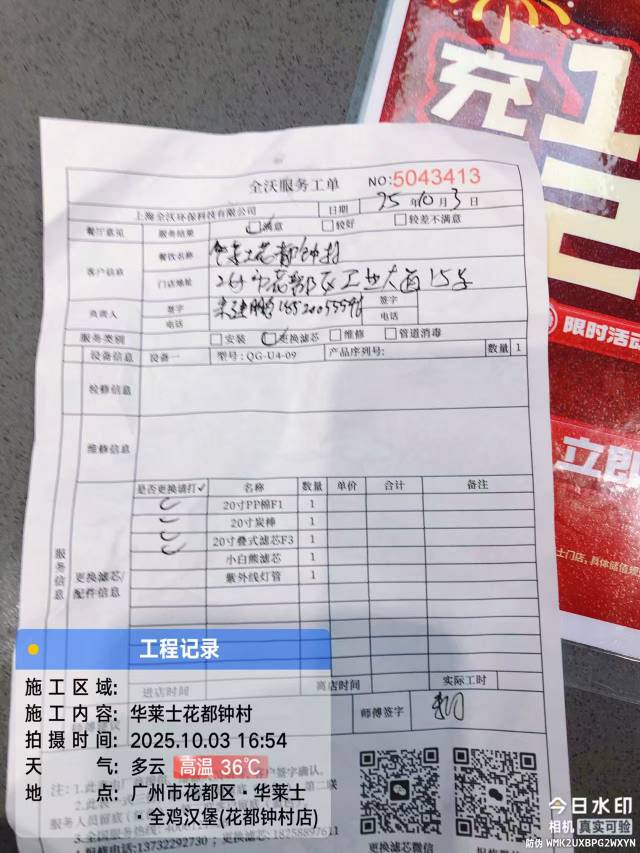 充
全沃服务工单 NO:5043413
上海全沃环保科技有限公司 日期 25年10月3日
餐厅意见 服务结果 满意 较好 较差不满意
客户信息 餐饮名称 华莱士花都钟村
门店地址 广州市花都区工业大道15号
负责人 签字 签字
电话 电话
服务类别 安装 更换滤芯 维修 管道消毒
设备信息 设备一 型号: QG-U4-09 产品序列号: 数量 1
检修信息
维修信息
是否更换请打✓ 名称 数量 单价 合计 备注
20寸PP棉F1 1
20寸炭棒 1
20寸叠式滤芯F3 1
小白熊滤芯 1
紫外线灯管 1
服务信息
更换滤芯/配件信息
进店时间 离店时间 实际工时
师傅签字
限时活动
立即
士门店,具体储值
工程记录
施工区域:
施工内容: 华莱士花都钟村
拍摄时间: 2025.10.03 16:54
天气: 多云 高温 36℃
地点: 广州市花都区·华莱士
·全鸡汉堡(花都钟村店)
签字确认。
第二联
服务人员留存
3.全国服务热线:
电话:13732292730; 更换滤芯:18258897611
更换滤芯微信
今日水印
相机 真实可验
防伪 WMK2UXBPG2WXYN